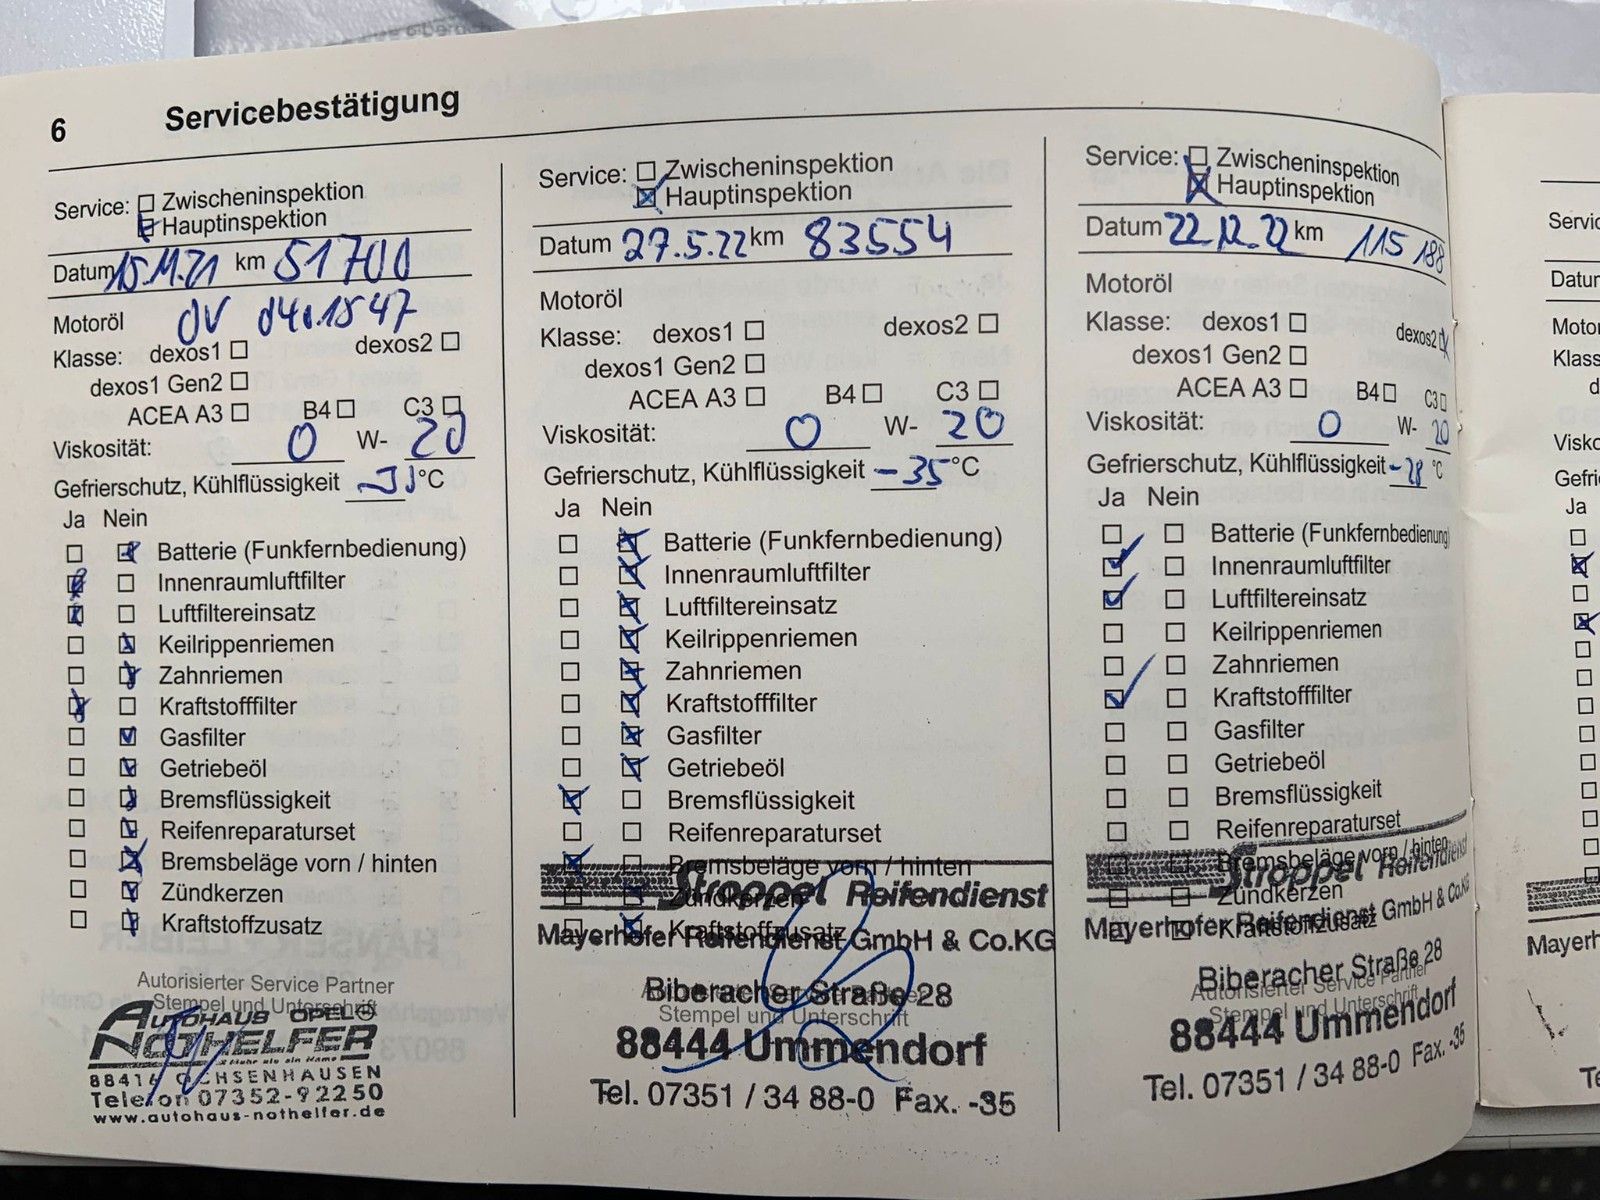 6 Servicebestätigung
Service: Zwischeninspektion
Hauptinspektion
Datum 15.11.21 km 51700
Motoröl OV
Klasse: dexos1 dexos2
dexos1 Gen2
ACEA A3 B4 C3
Viskosität: 0 W- 20
Gefrierschutz, Kühlflüssigkeit °C
Ja Nein
Batterie (Funkfernbedienung)
Innenraumluftfilter
Luftfiltereinsatz
Keilrippenriemen
Zahnriemen
Kraftstofffilter
Gasfilter
Getriebeöl
Bremsflüssigkeit
Reifenreparaturset
Bremsbeläge vorn / hinten
Zündkerzen
Kraftstoffzusatz
Autorisierter Service Partner
Stempel und Unterschrift
AUTOHAUS OPEL
NOTHELFER
Mehr als ein Name
88416 OCHSENHAUSEN
Telefon 07352-92250
www.autohaus-nothelfer.de
Service: Zwischeninspektion
Hauptinspektion
Datum 27.5.22 km 83554
Motoröl
Klasse: dexos1 dexos2
dexos1 Gen2
ACEA A3 B4 C3
Viskosität: 0 W- 20
Gefrierschutz, Kühlflüssigkeit -35 °C
Ja Nein
Batterie (Funkfernbedienung)
Innenraumluftfilter
Luftfiltereinsatz
Keilrippenriemen
Zahnriemen
Kraftstofffilter
Gasfilter
Getriebeöl
Bremsflüssigkeit
Reifenreparaturset
Bremsbeläge vorn / hinten
Zündkerzen
Stroppel Reifendienst
Kraftstoffzusatz
Mayerhofer Reifendienst GmbH & Co.KG
Autorisierter Service Partner
Biberacher Straße 28
Stempel und Unterschrift
88444 Ummendorf
Tel. 07351 / 34 88-0 Fax. -35
Service: Zwischeninspektion
Hauptinspektion
Datum 22.12.22 km 115 188
Motoröl
Klasse: dexos1 dexos2
dexos1 Gen2
ACEA A3 B4 C3
Viskosität: 0 W- 20
Gefrierschutz, Kühlflüssigkeit -28 °C
Ja Nein
Batterie (Funkfernbedienung)
Innenraumluftfilter
Luftfiltereinsatz
Keilrippenriemen
Zahnriemen
Kraftstofffilter
Gasfilter
Getriebeöl
Bremsflüssigkeit
Reifenreparaturset
Bremsbeläge vorn / hinten
Stroppel Reifendienst
Zündkerzen
Kraftstoffzusatz
Mayerhofer Reifendienst GmbH & Co.KG
Biberacher Straße 28
Autorisierter Service Partner
Stempel und Unterschrift
88444 Ummendorf
Tel. 07351 / 34 88-0 Fax. -35
Servic
Datur
Motor
Klass
d
Visko
Gefri
Ja
Mayerh
Te